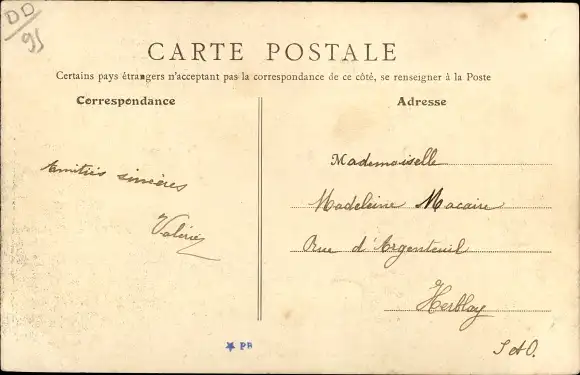 DD
95
CARTE POSTALE
Certains pays étrangers n'acceptant pas la correspondance de ce côté, se renseigner à la Poste
Correspondance
Amitiés sincères
Adresse
Mademoiselle
Madeleine Macaire
Rue d'Argenteuil
Herblay
S et O.
PB